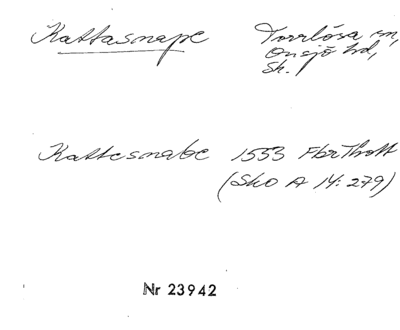 Kattasnape Torrlösa sn,
Onsjö hd,
Sk.
Kattesnabe 1553 FbrThott
(Sko A 14: 279)
Nr 23942